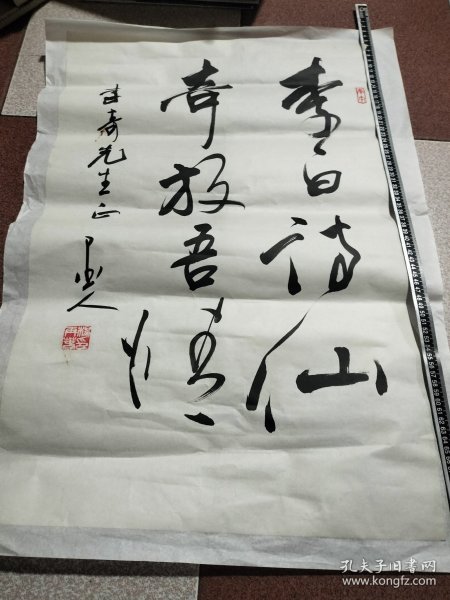 李白诗仙
奇放吾情
李奇先生正
孔夫子旧书网
www.kongfz.com